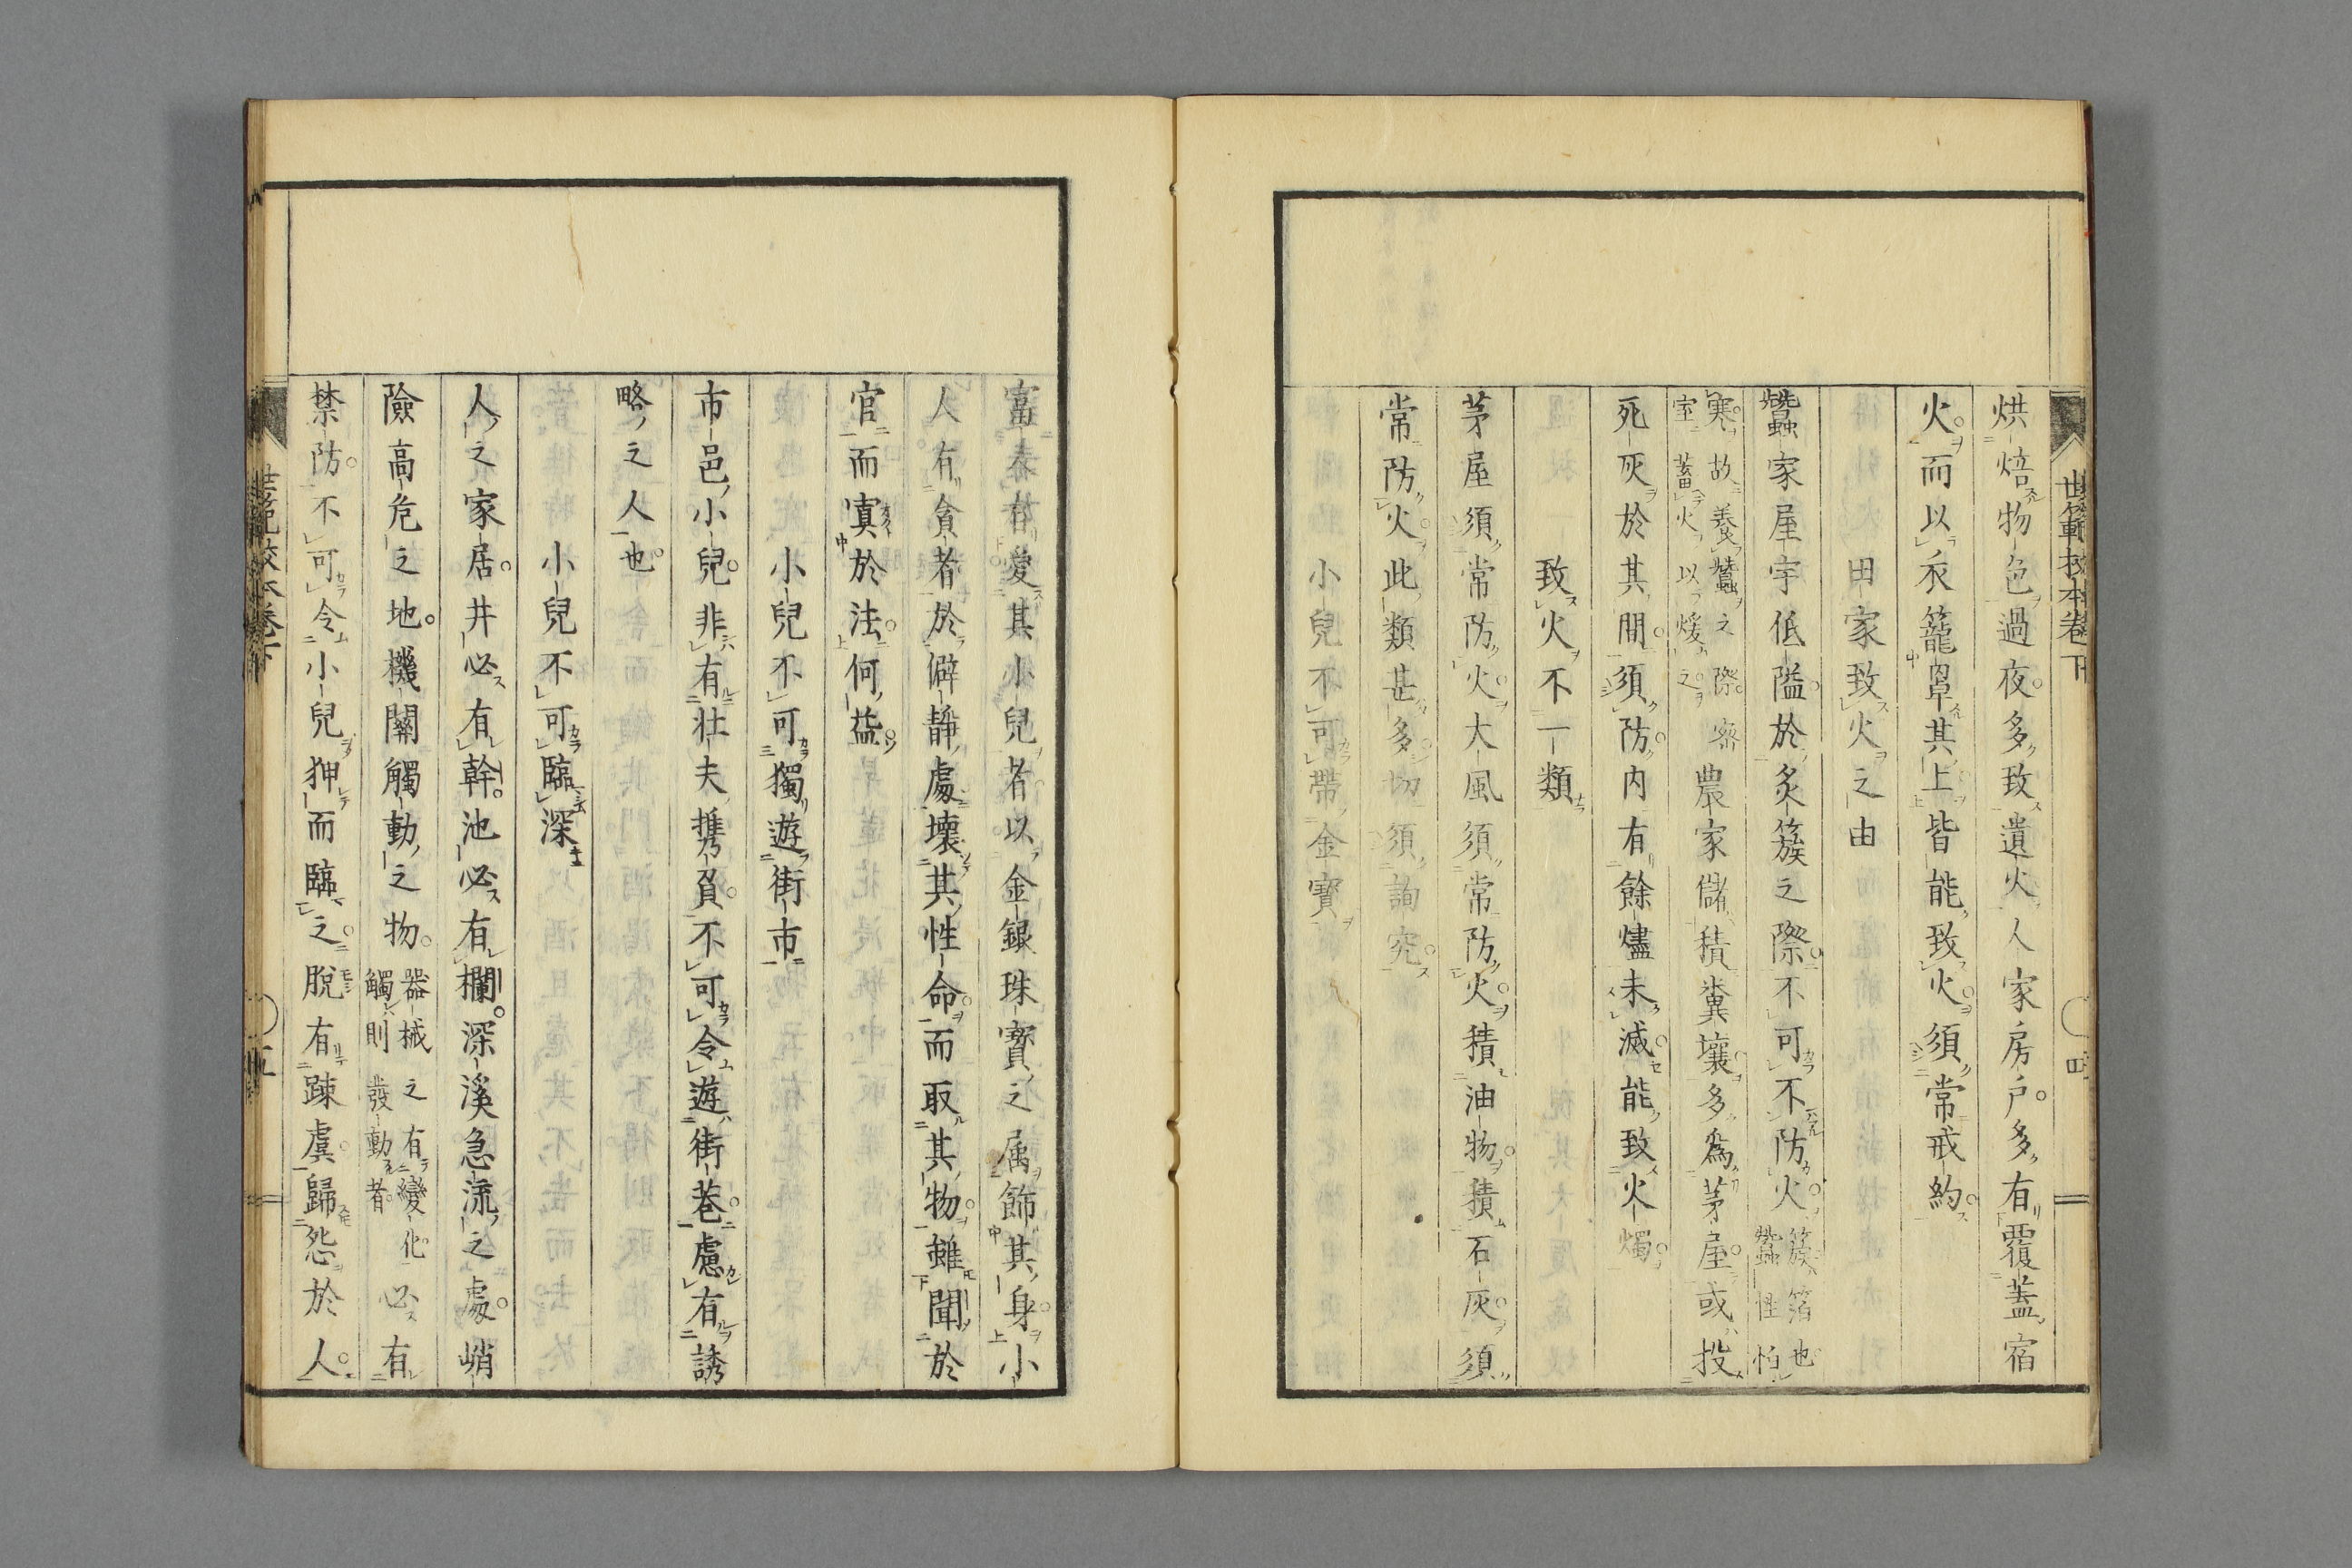 世範校本卷下
四
烘焙物色過夜。多致遺火人家房戶。多有覆蓋宿
火。而以衣籠罩其上皆能致火。須常戒約。
田家致火之由
蠶家屋宇低隘。於炙簇之際。不可不防火。簇箔也。蠶性怕
寒。故養蠶之際。密室蓄火以煖之。農家儲積糞壤。多爲茅屋。或投
死灰於其間。須防。內有餘燼未滅。能致火燭。
致火不一類
茅屋須常防火。大風須常防火。積油物。積石灰。須
常防火。此類甚多。切須詢究。
小兒不可帶金寶
富人有愛其小兒者。以金銀珠寶之属飾其身。小
人有貪者。於僻靜處壞其性命。而取其物。雖聞於
官。而寘於法。何益。
小兒不可獨遊街市
市邑小兒。非有壮夫携負。不可令遊街巷。慮有誘
略之人也。
小兒不可臨深
人之家居。井必有幹。池必有欄。深溪急流之處。峭
險高危之地。機關觸動之物。器械之有變化。觸則發動者。必有
禁防。不可令小兒狎而臨之。脫有踈虞。歸怨於人。
世範校本卷下
五